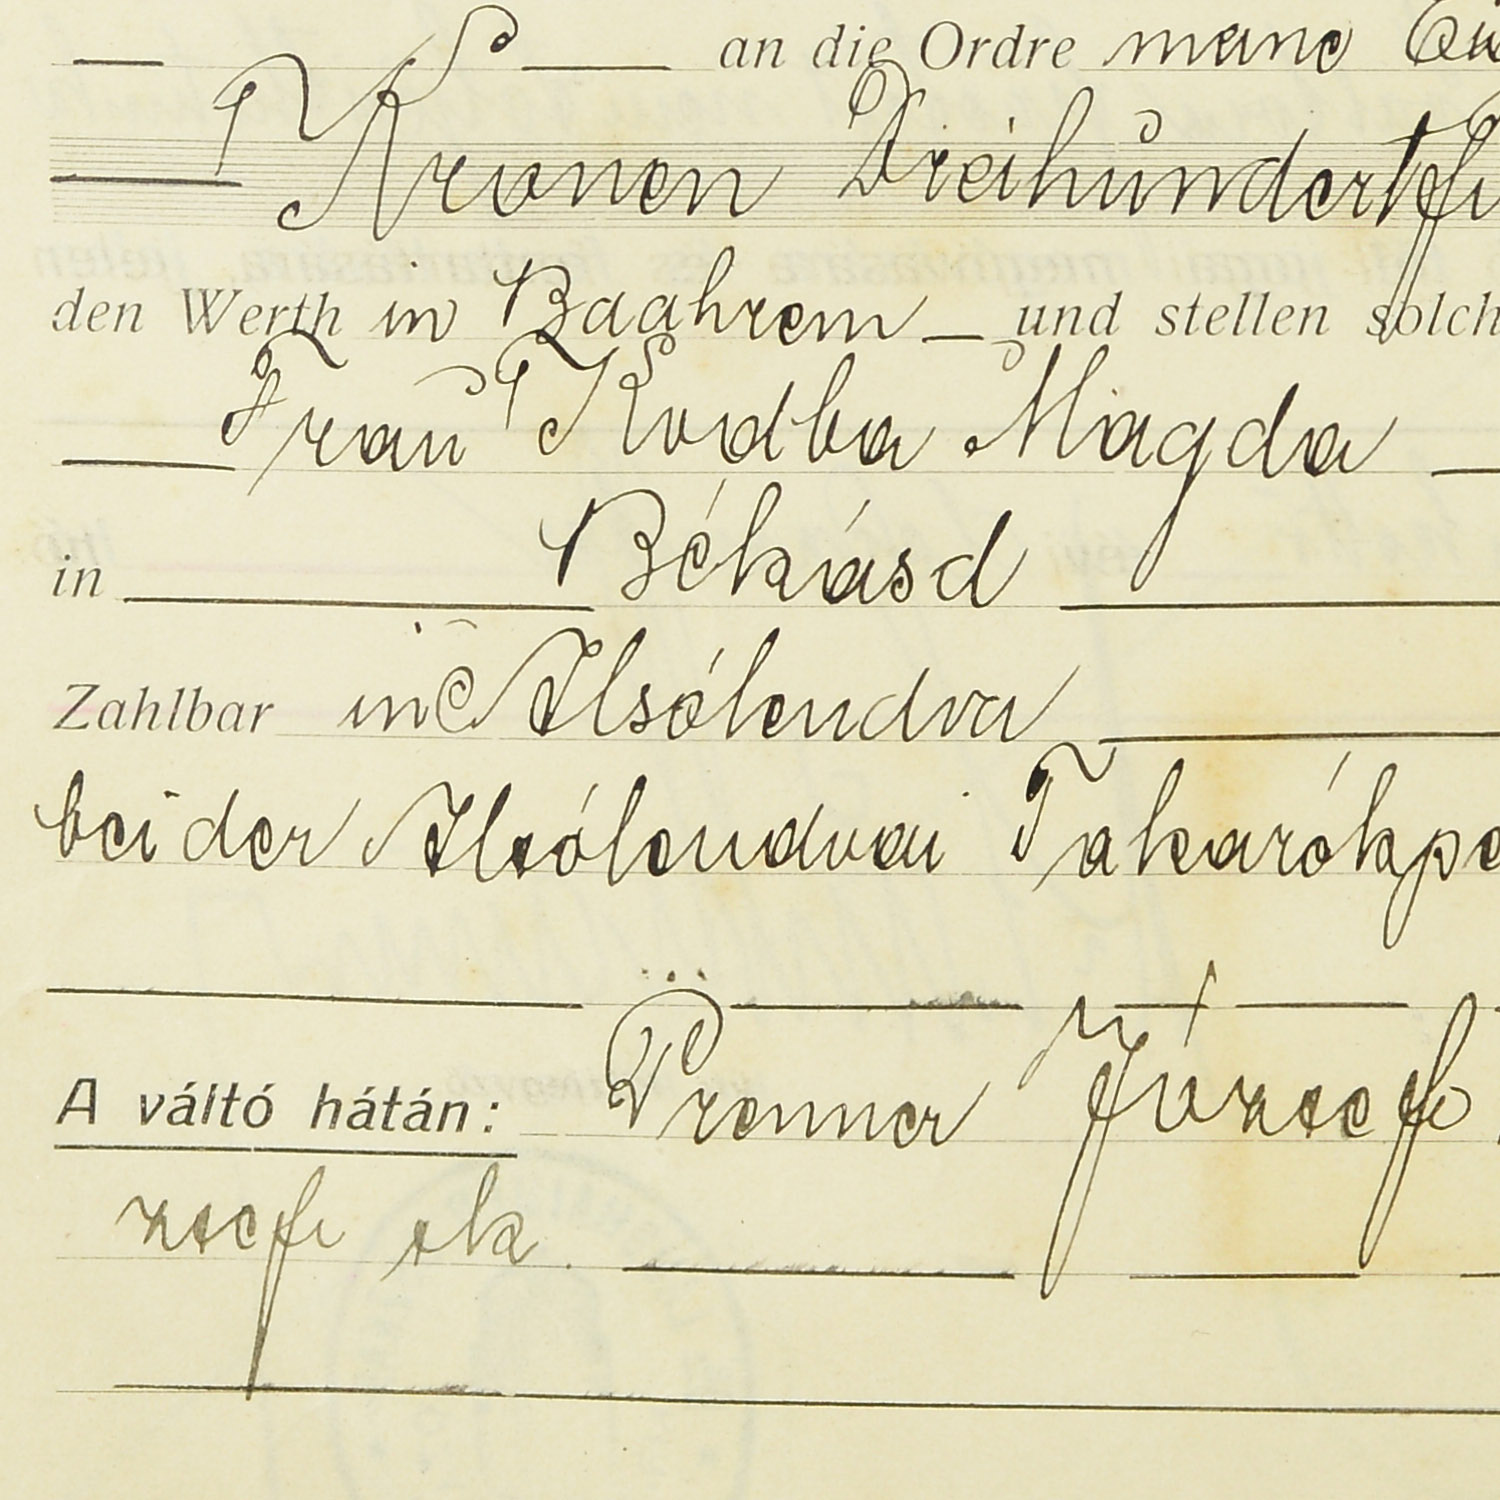 an die Ordre meine
Kronen Dreihundertfü
den Werth in Baahrem und stellen solch
Frau Kodba Magda
in Békásd
Zahlbar in Alsólendva
bei der Alsólendvai Takarékpe
A váltó hátán: Prenner József
zsef sk.